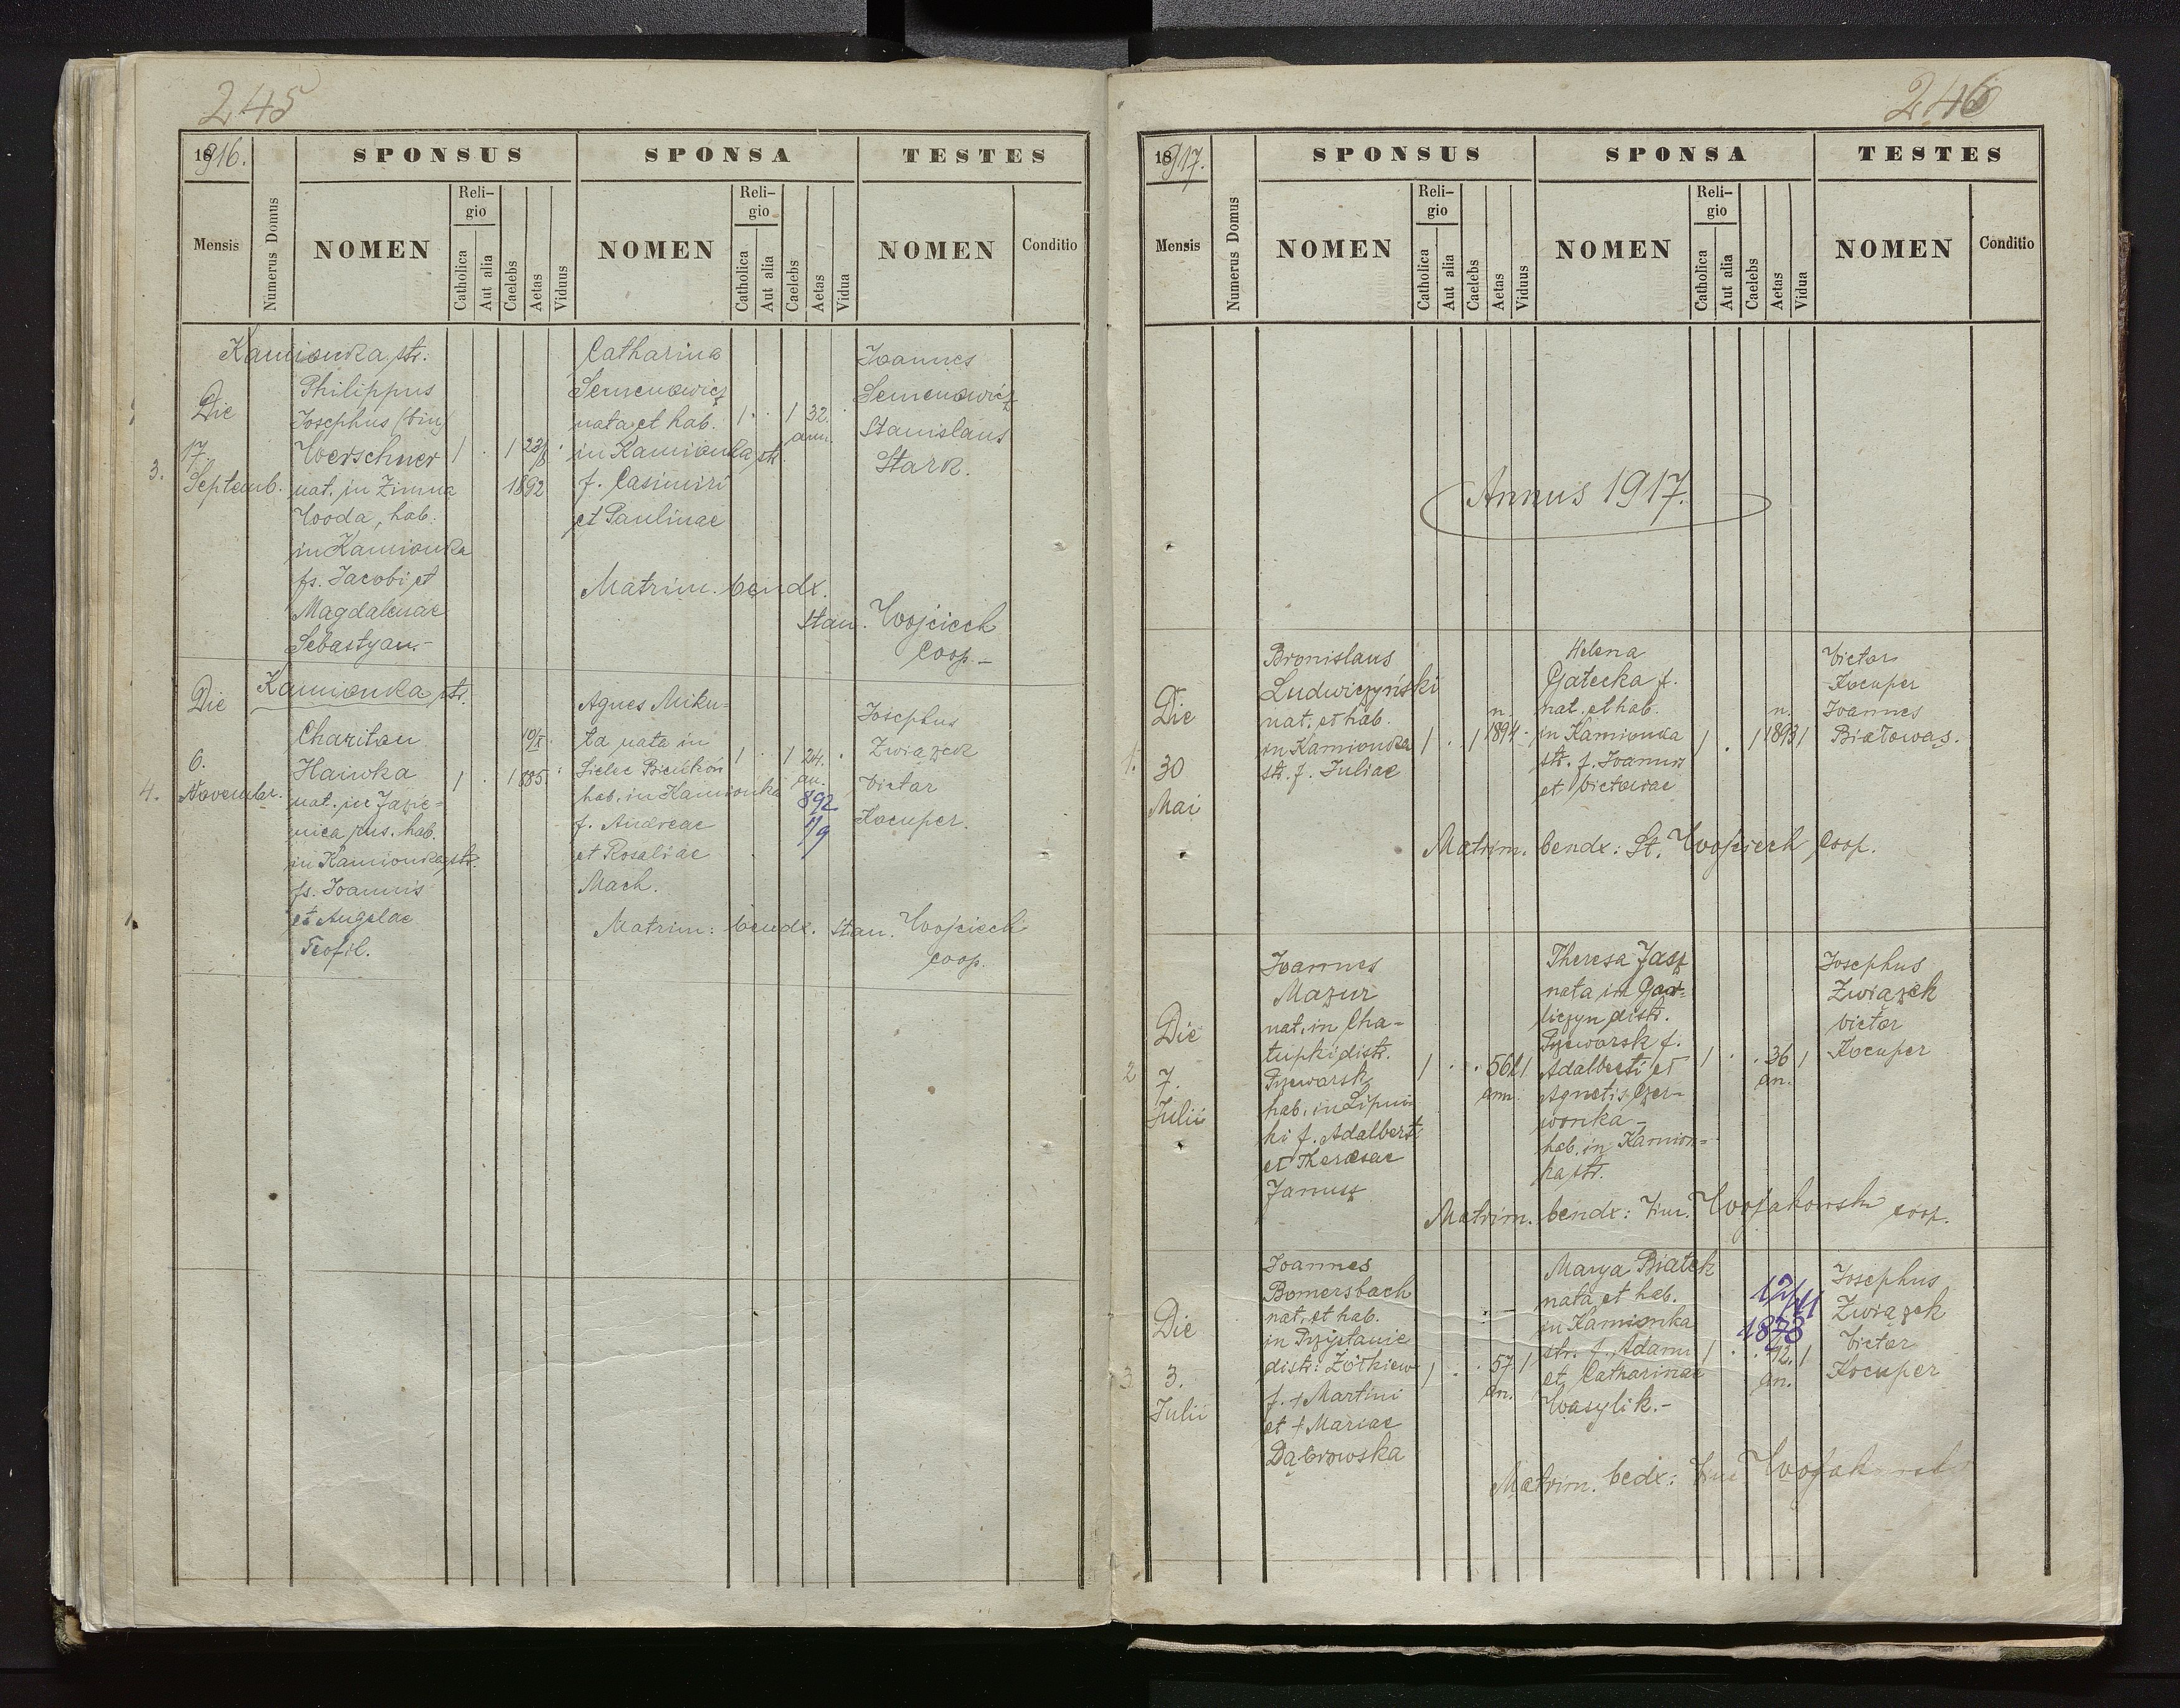 245
18916.
SPONSUS
SPONSA
TESTES
Mensis
Numerus Domus
NOMEN
Religio
Catholica
Aut alia
Caelebs
Aetas
Viduus
NOMEN
Religio
Catholica
Aut alia
Caelebs
Aetas
Vidua
NOMEN
Conditio
3.
Kamionka str.
Die
17.
Septemb.
Philippus
Josephus (bin)
Werschner
nat. in Zimna
Woda, hab.
in Kamionka
fs. Jacobi et
Magdalenae
Sebastyan.-
1 . 1 23/8 .
1892
Catharina
Semenowicz
nata et hab.
in Kamionka str.
f. Casimiri
et Paulinae
1 . 1 32 .
ann.
Joannes
Semenowicz
Stanislaus
Stark.
Matrim. bendx.
Stan. Wojciech
Coop.-
4.
Kamionka str.
Die
6.
November.
Chariton
Haiwka
nat. in Jazie-
nica rus. hab.
in Kamionka str.
fs. Joannis
et Angelae
Teofil.
10/X
1 . 1 885 .
Agnes Miku-
ta nata in
Sielec Bieńków
hab. in Kamionka
f. Andreae
et Rosaliae
Mach.
1 . 1 24 .
an.
892
1/9
Josephus
Związek
Victor
Kocuper.
Matrim: bendx. Stan. Wojciech
coop.
246
18917.
SPONSUS
SPONSA
TESTES
Mensis
Numerus Domus
NOMEN
Religio
Catholica
Aut alia
Caelebs
Aetas
Viduus
NOMEN
Religio
Catholica
Aut alia
Caelebs
Aetas
Vidua
NOMEN
Conditio
Annus 1917.
1.
Die
30
Mai
Bronislaus
Ludwiczyński
nat. et hab.
in Kamionka
str. f. Juliae
n.
1 . 1 1894 .
Helena
Gałecka f.
nat. et hab.
in Kamionka
str. f. Joannis
et Victoriae
n.
1 . 1 1893 1
Victor
Kocuper
Joannes
Białowąs.
Matrim. bendx: St. Wojciech Coop.
2
Die
7.
Julii
Joannes
Mazur
nat. in Cha-
łupki distr.
Przeworsk
hab. in Lipni-
ki f. Adalberti
et Theresae
Janusz
1 . . 56 1
ann.
Theresa Jasz
nata in Gor-
liczyn distr.
Przeworsk f.
Adalberti et
Agnetis Czer-
wonka -
hab. in Kamion-
ka str.
1 . . 36 1
an.
Josephus
Związek
Victor
Kocuper
Matrim. bendx: Vinc. Wojakowski coop.
3
Die
3.
Julii
Joannes
Bomersbach
nat. et hab.
in Przystanie
distr: Żółkiew
f. + Martini
et + Mariae
Dąbrowska
1 . . 57 1
an.
Marya Białek
nata et hab.
in Kamionka
str. f. Adami
et Catharinae
Wasylik.-
1878
1 . . 42. 1
an.
Josephus
Związek
Victor
Kocuper
Matrim. bedx: Vinc. Wojakowski